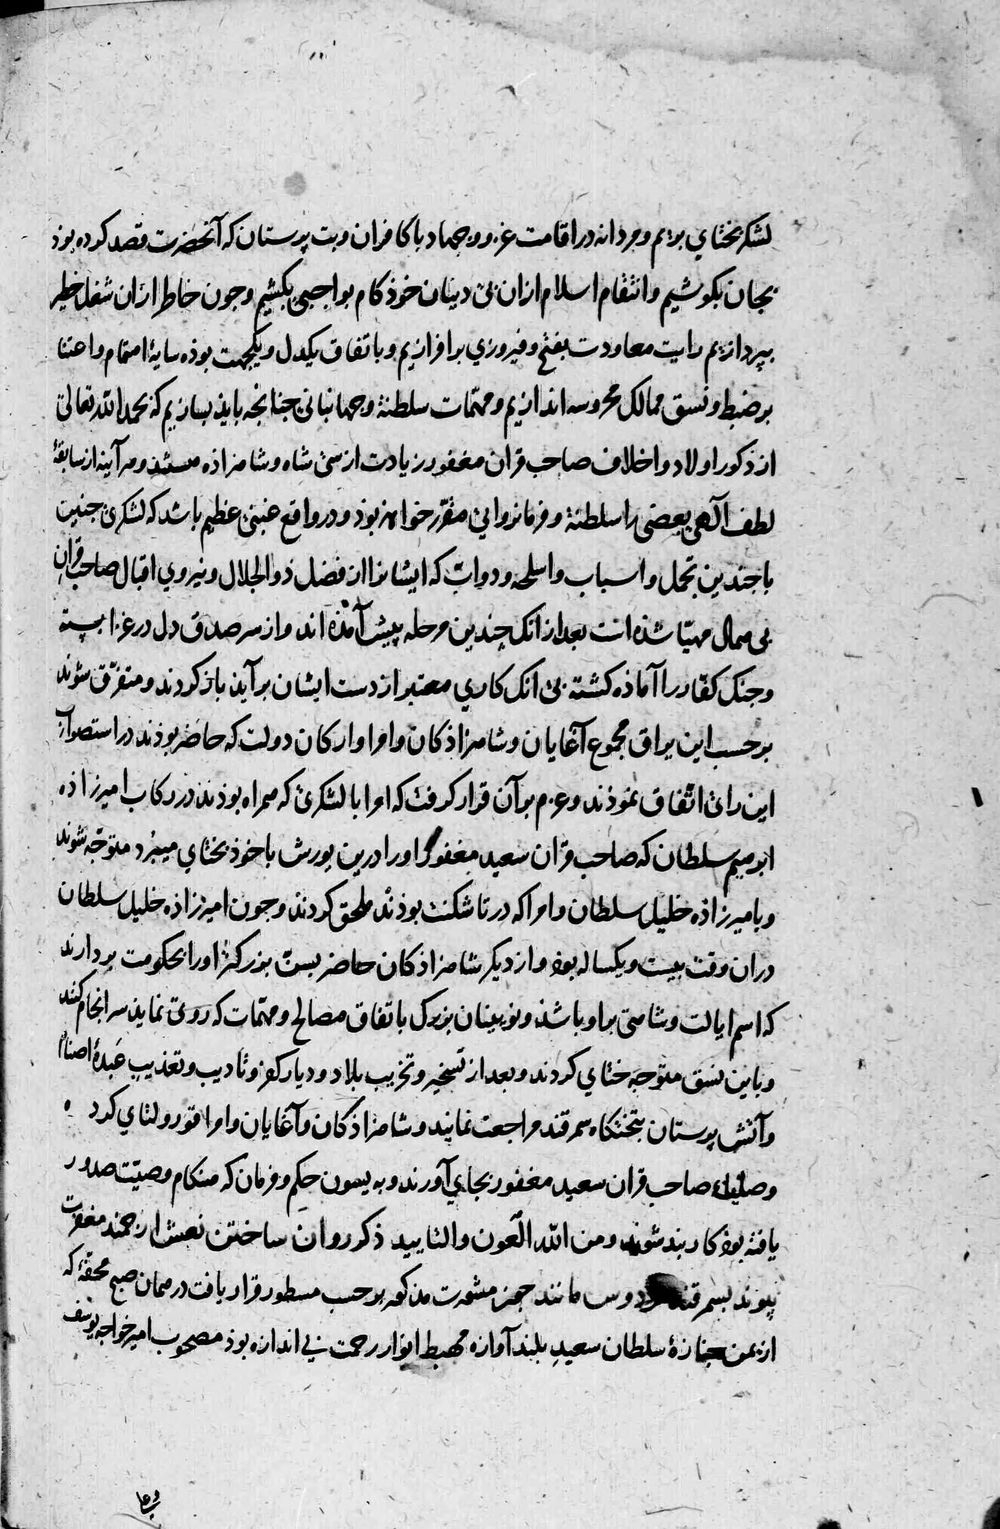 لشکر بختای بریم و مردانه در اقامت غزو و جهاد با کافران و بت پرستان که آنحضرت قصد کرده بوذ
بجان بکوشیم و انتقام اسلام ازان بی دینان خوذ کام بواجبی بکشیم و جون خاطر ازان شغل خطیر
بپردازیم رایت معاودت بفتح و فیروزی برافرازیم و باتفاق یکدل و یکجهت بوذه سایهٔ اهتمام و اعتنا
بر ضبط و نسق ممالک محروسه اندازیم و مهمّات سلطنة و جهانبانی جنانجه بایذ بسازیم که بحمد الله تعالی
از ذکور اولاد و اخلاف صاحب قران مغفور زیادت از سی شاه و شاهزاذه هستند و هر آینه از سابقهٔ
لطف آلهی بعضی را سلطنة و فرمانروایی مقرّر خواهذ بوذ و در واقع غبنی عظیم باشد که لشکری جنین
با جندین تجمل و اسباب و اسلحه و دوابّ که ایشانرا از فضل ذو الجلال و نیروی اقبال صاحب قران
بی همال مهیّا شذه است بعد از انک جندین مرحله پیش آمذه اند و از سر صدق دل در غزا بسته
و جنک کفار را آماذه کشته بی انک کاری معتبر از دست ایشان برآید باز کردند و متفرّق شوند
بر حسب این یراق مجموع آغایان و شاهزاذکان و امرا و ارکان دولت که حاضر بوذند در استصواب
این رای اتفاق نموذند و عزم بر آن قرار کرفت که امرا با لشکری که همراه بوذند در رکاب امیرزاذه
ابرهیم سلطان که صاحب قران سعید مغفور اورا درین یورش با خوذ بختای میبرد متوجّه شوند
و بامیرزاذه خلیل سلطان و امرا که در تاشکنت بوذند ملحق کردند و جون امیرزاذه خلیل سلطان
دران وقت بیست و یکساله بوذ و از دیکر شاهزاذکان حاضر بسنّ بزرکتر اورا بحکومت بردارند
که اسم ایالت و شاهی براو باشذ و نوینان بزرک باتفاق مصالح و مهمّات که روی نماید سر انجام کنند
و باین نسق متوجه ختای کردند و بعد از تسخیر و تخریب بلاد و دیار کفر و تادیب و تعذیب عَبدهٔ اصنام
و آتش پرستان بتختکاه سمرقند مراجعت نمایند و شاهزاذکان و آغایان و امرا قورولتای کرده
و صلیای صاحب قران سعید مغفور بجای آورند و به یسون حکم و فرمان که هنکام وصیّت صدور
یافته بوذ کاربند شوند و من الله العون و التایید ذکر روان ساختن نعش ارجمند مغفرت
پیوند بسمرقند فردوس مانند جون مشورت مذکور بر حسب مسطور قرار یافت در همان صبح محفّهٔ که
از یمن جنازهٔ سلطان سعید بلند آوازه مهبط انوار رحمت بی اندازه بوذ مصحوب امیر خواجه یوسف